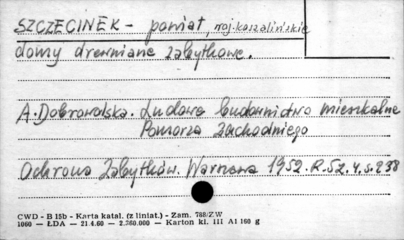 SZCZECINEK - powiat, woj. koszalińskie
domy drewniane zabytkowe.
A. Dobrowolska. Ludowe budownictwo mieszkalne
Pomorza Zachodniego
Ochrona Zabytków. Warszawa 1952. R. 5 z. 4. s. 238
CWD - B 15b - Karta katal. (z liniat.) - Zam. 788/ZW
1060 - ŁDA - 21 4.60 - 2.380.000 - Karton kl. III A1 160 g